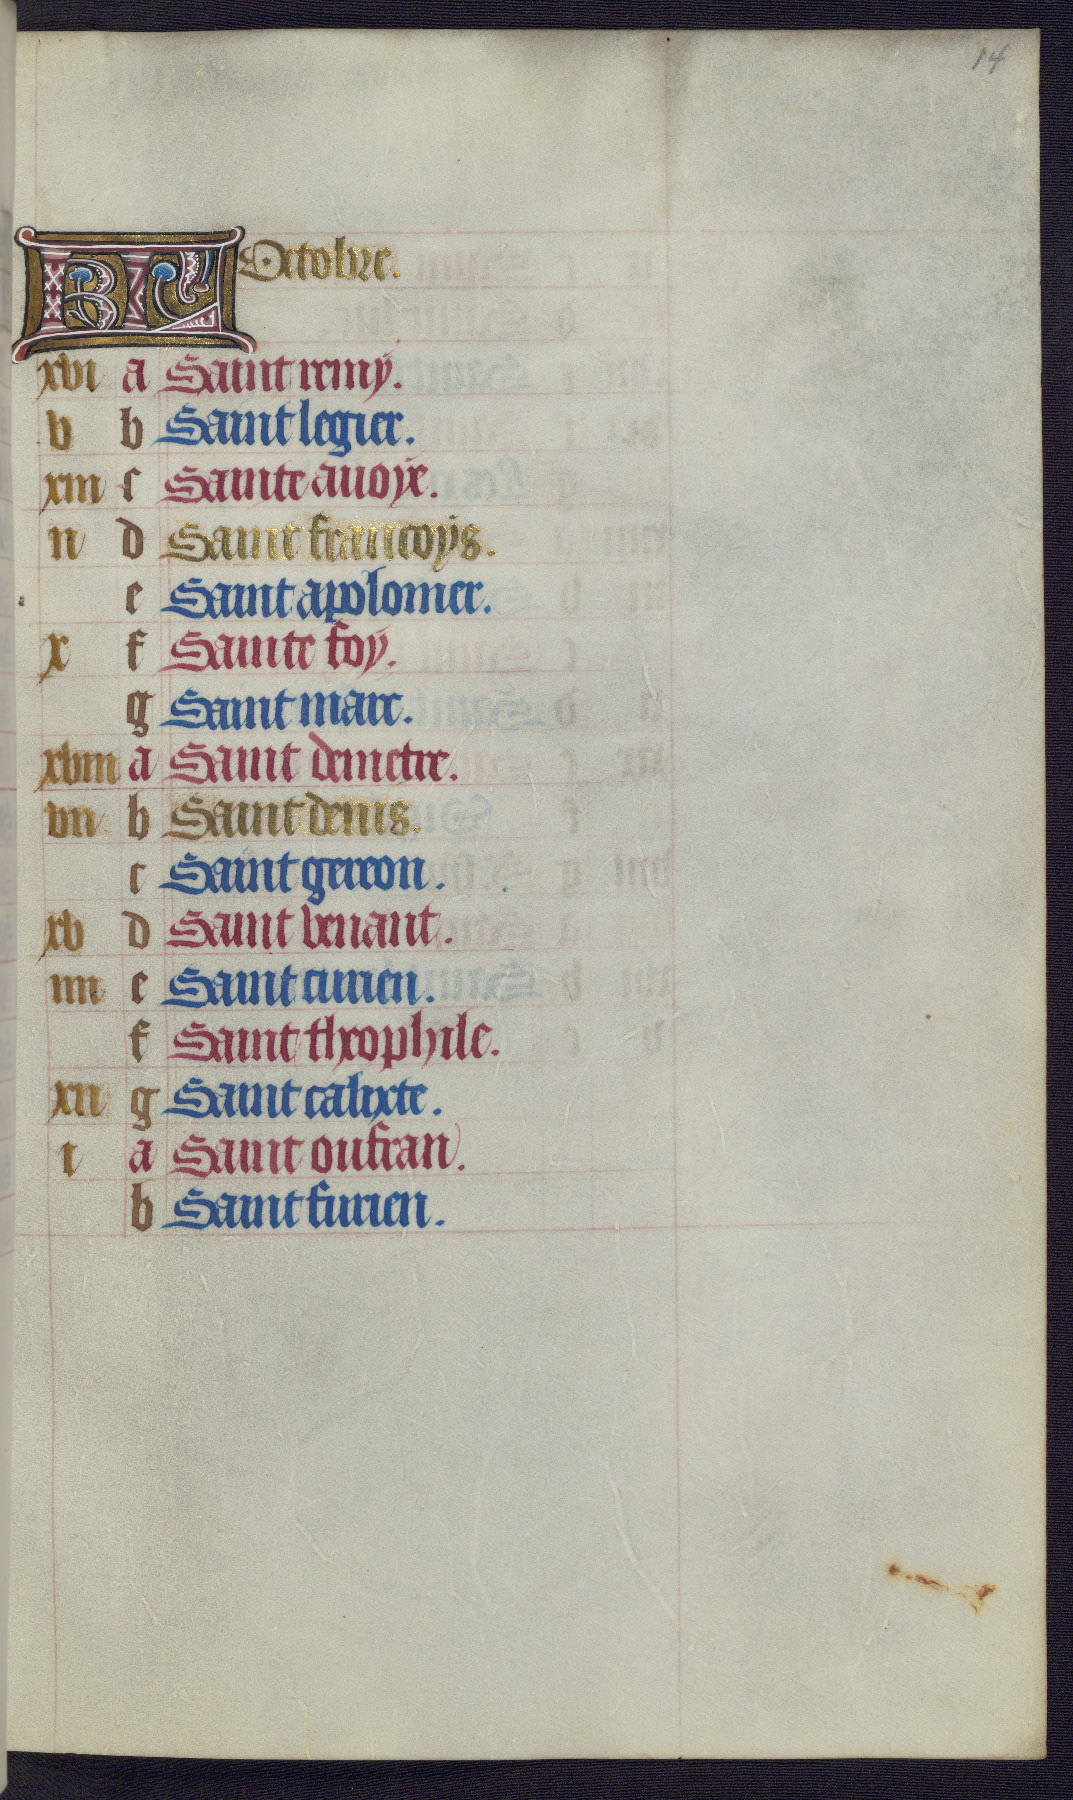 14
KL Octobre.
xvi a Saint remy.
v b Saint legier.
xiii c Sainte auoye.
ii d Saint francoys.
e Saint apolomer.
x f Sainte foy.
g Saint marc.
xviii a Saint demetre.
vii b Saint denis.
c Saint gereon.
xv d Saint venant.
iiii e Saint cirien.
f Saint theophile.
xii g Saint calixte.
i a Saint oufran.
b Saint furien.